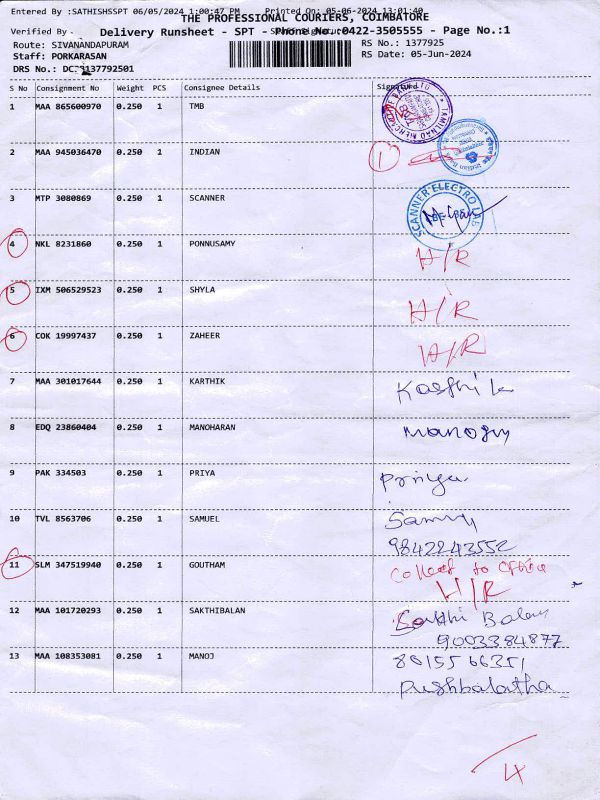 Entered By :SATHISHSSPT 06/05/2024 1:00:47 PM Printed On: 05-06-2024 13:01:40
THE PROFESSIONAL COURIERS, COIMBATORE
Verified By
Delivery Runsheet - SPT - Phone No.:0422-3505555 - Page No.:1
Route: SIVANANDAPURAM RS No.: 1377925
Staff: PORKARASAN RS Date: 05-Jun-2024
DRS No.: 137792501
S No Consignment No Weight PCS Consignee Details Signature
1 MAA 865600970 0.250 1 TMB
2 MAA 945036470 0.250 1 INDIAN 1
3 MTP 3080869 0.250 1 SCANNER SCANNER ELECTRO LAB
4 NKL 8231860 0.250 1 PONNUSAMY H/R
5 IXM 506529523 0.250 1 SHYLA H/R
6 COK 19997437 0.250 1 ZAHEER H/R
7 MAA 301017644 0.250 1 KARTHIK Karthik
8 EDQ 23860404 0.250 1 MANOHARAN
9 PAK 334503 0.250 1 PRIYA Priya
10 TVL 8563706 0.250 1 SAMUEL
9842243552
11 SLM 347519940 0.250 1 GOUTHAM Collect to office
H/R
12 MAA 101720293 0.250 1 SAKTHIBALAN Sakthi Balan
9003384877
13 MAA 108353081 0.250 1 MANOJ 8015566351
Pushbalatha
4